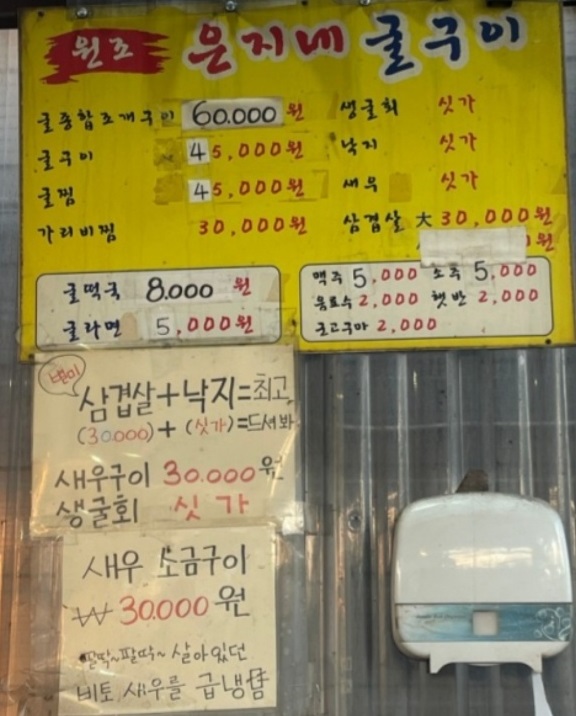 원조 은지네 굴구이
굴종합조개구이 60.000원
굴구이 45,000원
굴찜 45,000원
가리비찜 30,000원
생굴회 싯가
낙지 싯가
새우 싯가
삼겹살 大 30,000원
원
굴떡국 8.000원
굴라면 5,000원
맥주 5,000 소주 5,000
음료수 2,000 햇반 2,000
군고구마 2,000
별미
삼겹살+낙지=최고
(30.000)+(싯가)=드셔봐
새우구이 30.000원
생굴회 싯가
새우 소금구이
₩ 30.000원
팔딱~팔딱~ 살아있던
비토 새우를 급냉함